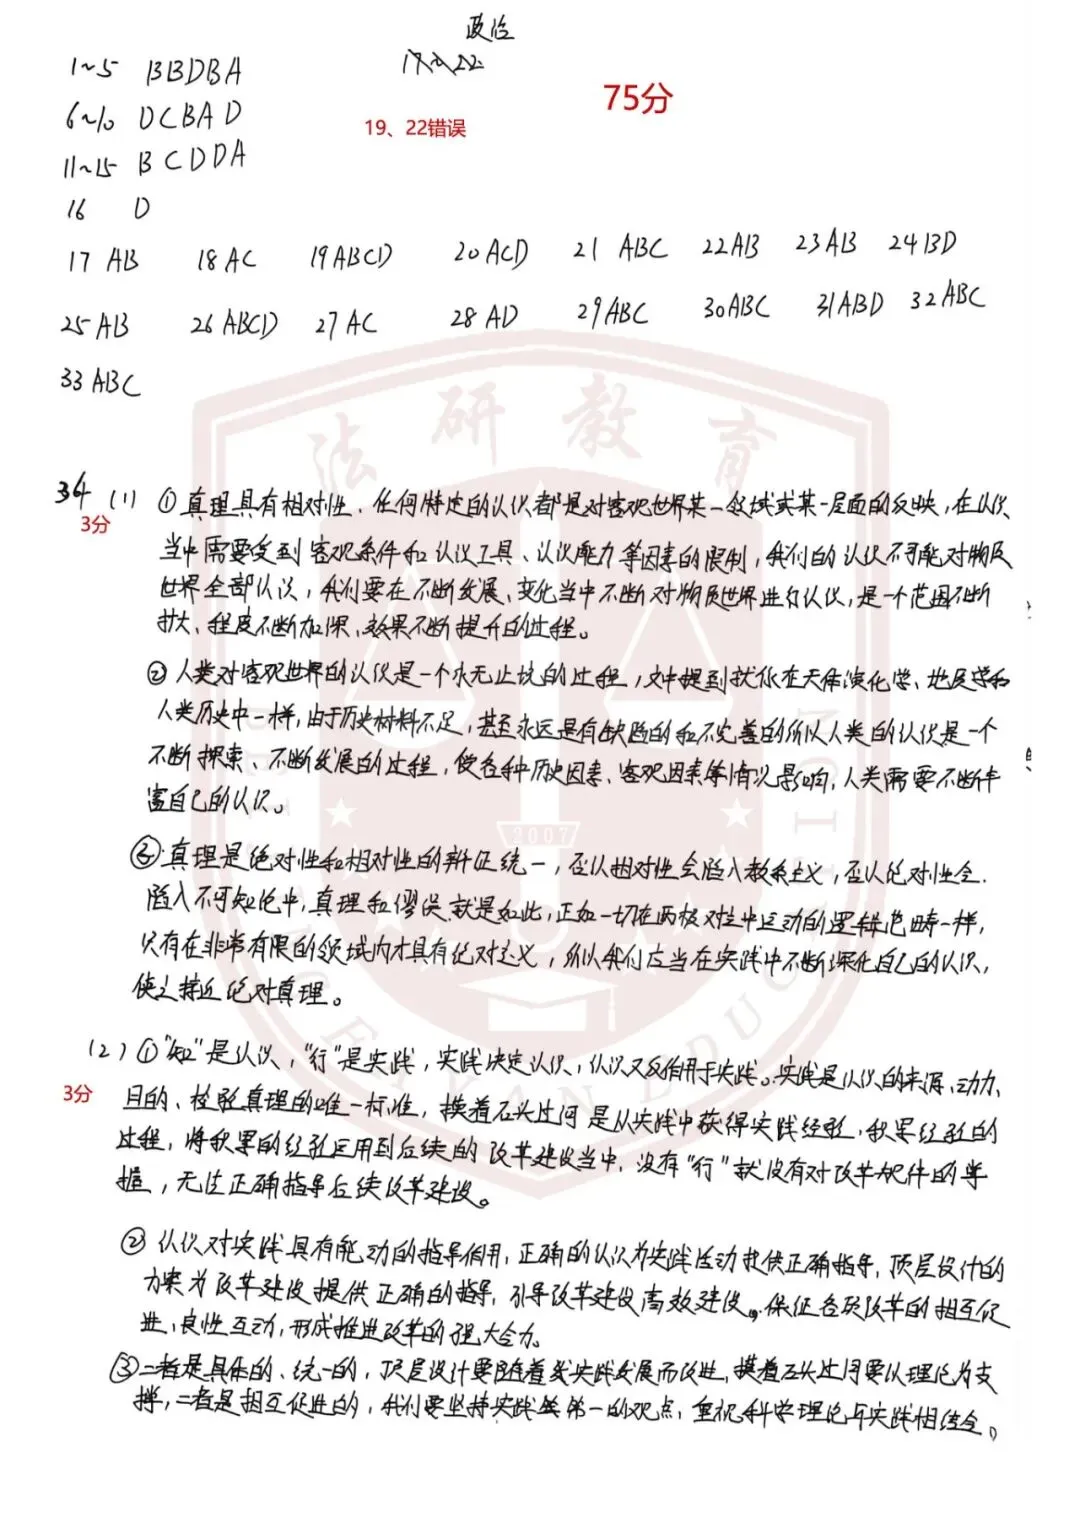 政治
1~5 BBDBA
17、22
75分
6~10 DCBAD
19、22错误
11~15 BCDDA
16 D
17 AB 18 AC 19 ABCD 20 ACD 21 ABC 22 AB 23 AB 24 BD
25 AB 26 ABCD 27 AC 28 AD 29 ABC 30 ABC 31 ABD 32 ABC
33 ABC
法研教育
34 (1) ①真理具有相对性,任何特定的认识都是对客观世界某一领域或某一层面的反映,在认识
3分
当中需要受到客观条件和认识工具、认识能力等因素的限制,我们的认识不可能对物质
世界全部认识,我们要在不断发展、变化当中不断对物质世界进行认识,是一个范围不断
扩大、程度不断加深、效果不断提升的过程。
②人类对客观世界的认识是一个永无止境的过程,文中提到就像在天体演化学、地质学和
人类历史中一样,由于历史材料不足,甚至永远是有缺陷的和不完善的所以人类的认识是一个
不断探索、不断发展的过程,使各种历史因素、客观因素等情况影响,人类需要不断丰
富自己的认识。
③真理是绝对性和相对性的辩证统一,否认相对性会陷入教条主义,否认绝对性会
陷入不可知论中,真理和谬误就是如此,正如一切在两极对立中运动的逻辑范畴一样,
只有在非常有限的领域内才具有绝对意义,所以我们应当在实践中不断深化自己的认识,
使之接近绝对真理。
2007
(2) ①"知"是认识,"行"是实践,实践决定认识,认识又反作用于实践。实践是认识的来源、动力、
3分
目的、检验真理的唯一标准,摸着石头过河是从实践中获得实践经验,积累经验的
过程,将积累的经验运用到后续的改革建设当中,没有"行"就没有对改革规律的掌
握,无法正确指导后续改革建设。
②认识对实践具有能动的指导作用,正确的认识为实践活动提供正确指导,顶层设计的
方案为改革建设提供正确的指导,引导改革建设高效建设。保证各项改革的相互促
进、良性互动,形成推进改革的强大合力。
③二者是具体的、统一的,顶层设计要随着实践发展而改进,摸着石头过河要以理论为支
撑,二者是相互促进的,我们要坚持实践是第一的观点,重视科学理论与实践相结合。